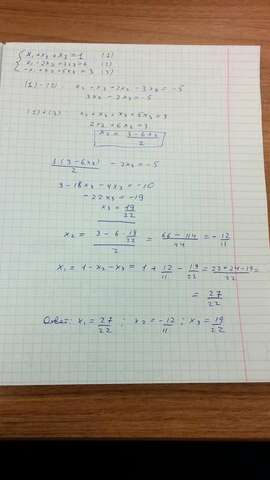 x₁ + x₂ + x₃ = 1 (1)
x₁ - 2x₂ + 3x₃ = 6 (2)
-x₁ + x₂ + 5x₃ = 3 (3)
(1) - (2) x₂ + x₃ + 2x₂ - 3x₃ = -5
3x₂ - 2x₃ = -5
x₂ + x₃ + x₂ + 5x₃ = 3
2x₂ + 6x₃ = 3
x₂ = (3 - 6x₃)/2
3(3 - 6x₃)/2 - 2x₃ = -5
3 - 18x₃ - 4x₃ = -10
-22x₃ = -19
x₃ = 19/22
x₂ = (3 - 6·19/22)/2 = (66 - 114)/44 = -12/11
x₁ = 1 - x₂ - x₃ = 1 + 12/11 - 19/22 = (22 + 24 - 19)/22 =
= 27/22
Ответ: x₁ = 27/22 ; x₂ = -12/11 ; x₃ = 19/22